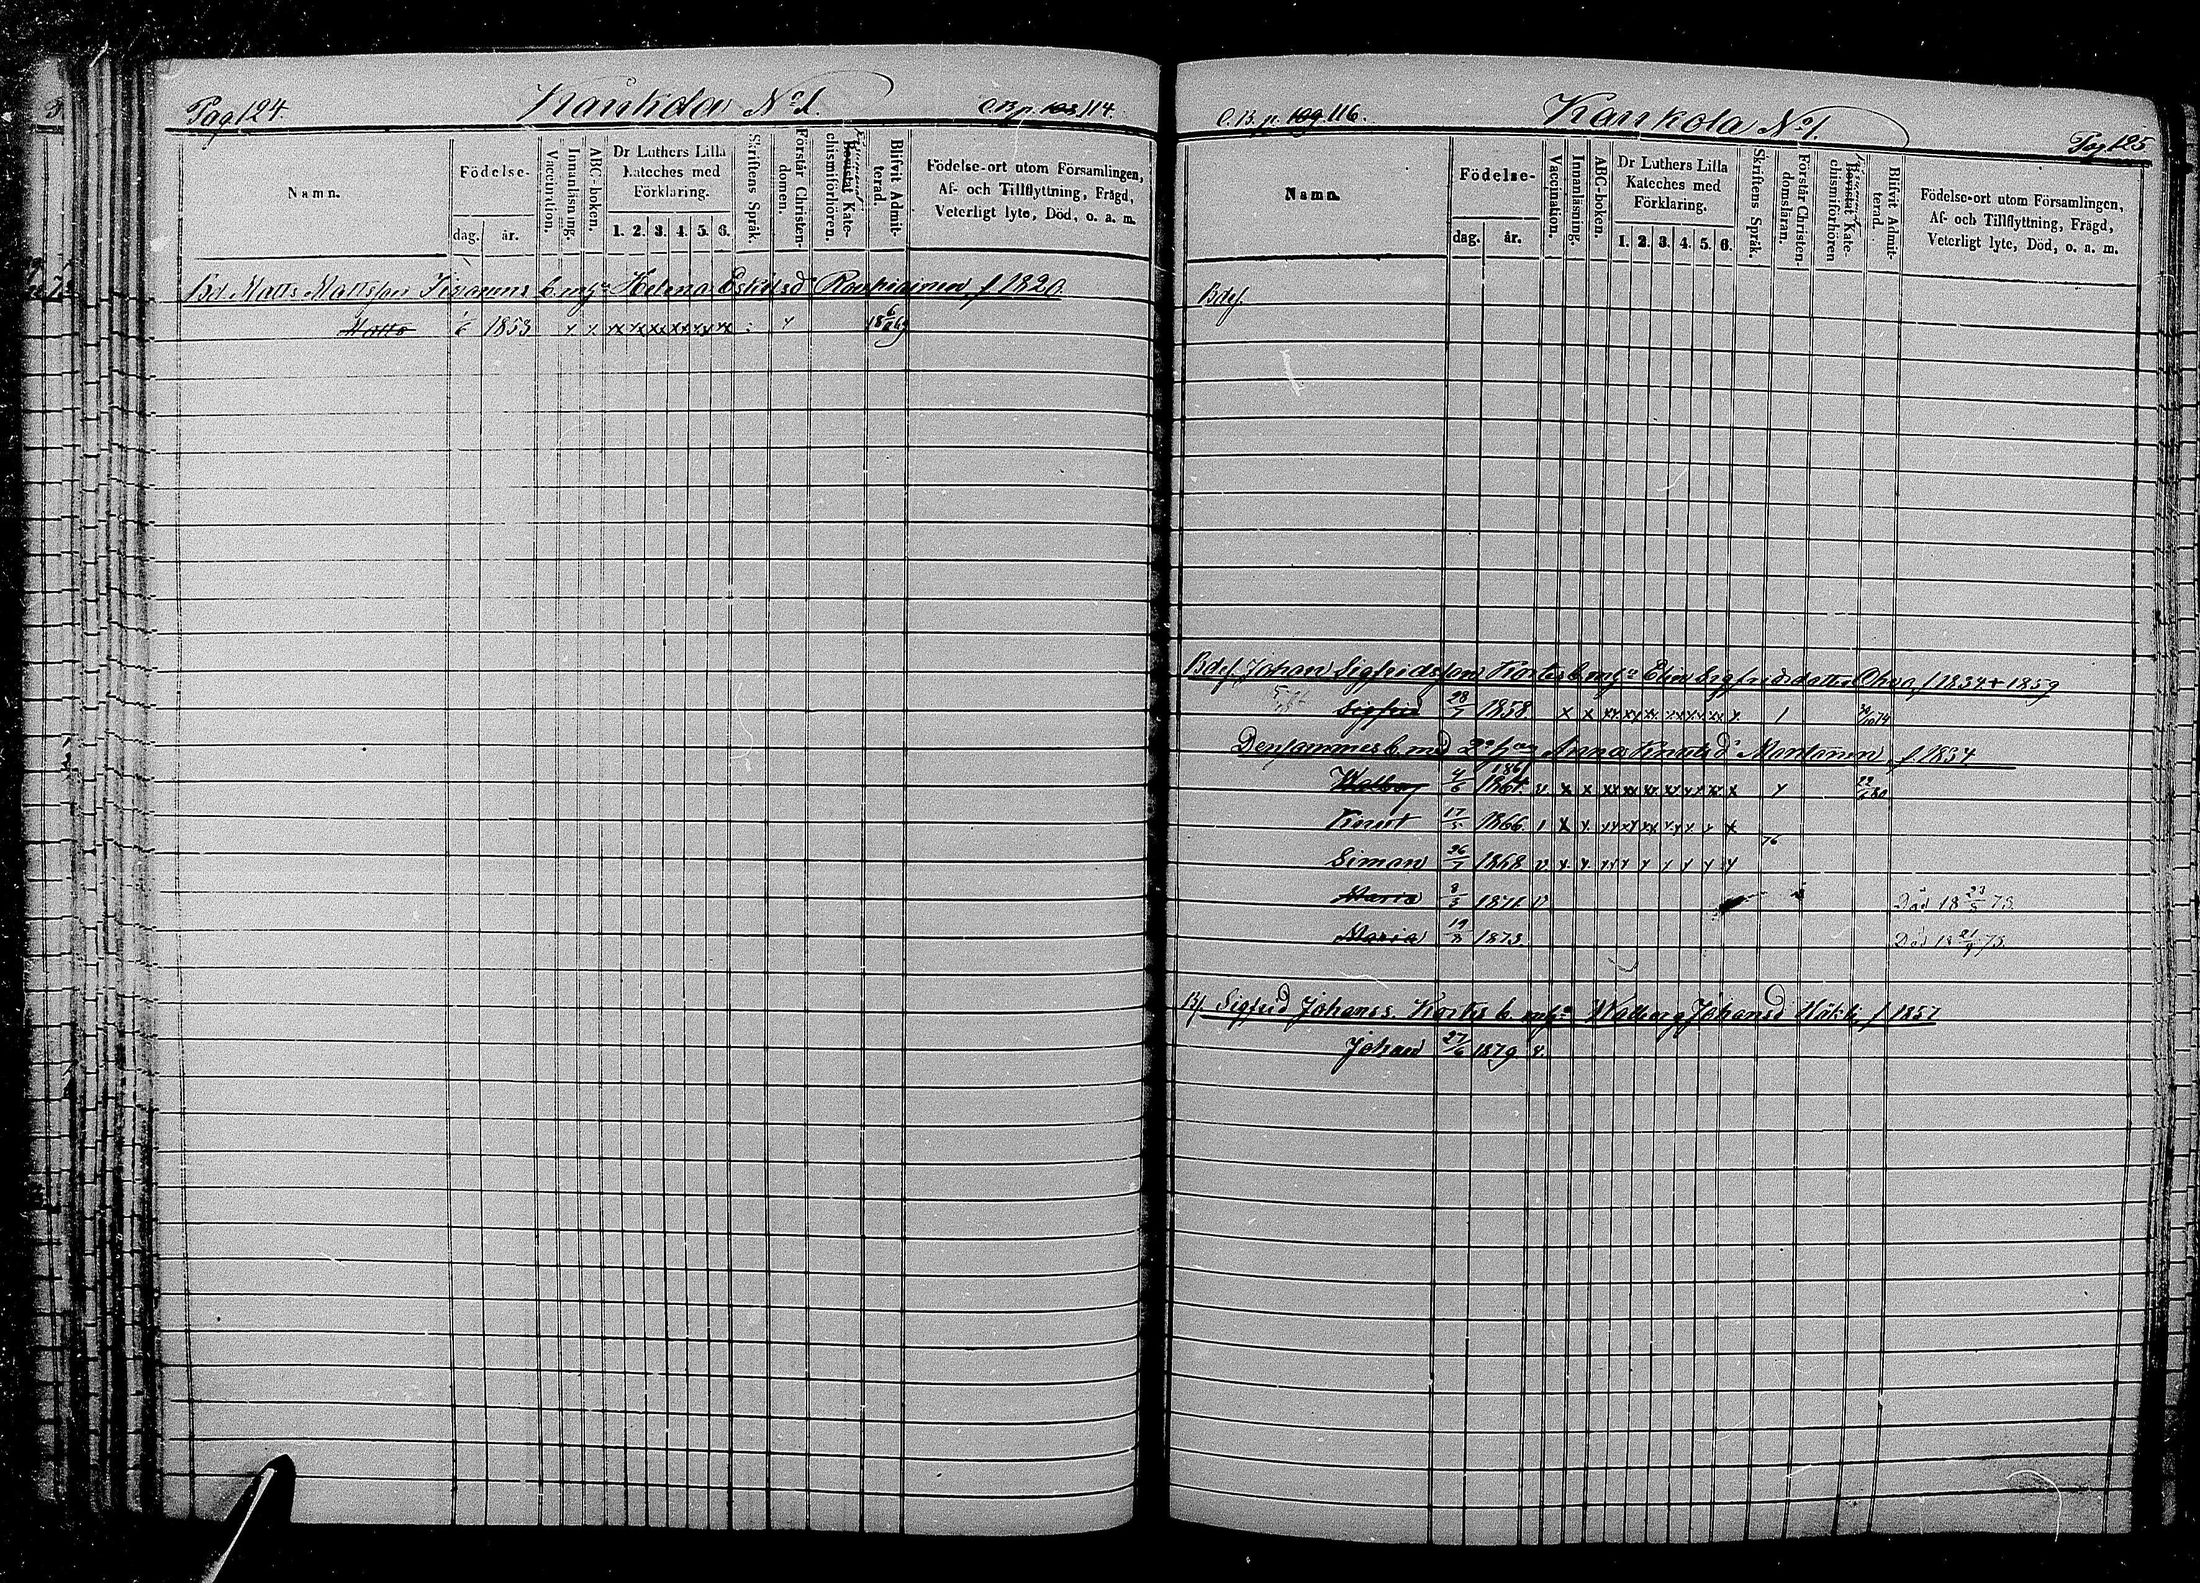 Pag 124.
Kankola No 1.
C.B. p. 103 114.
Namn.
Födelse-
dag. år.
Vaccination.
Innanläsning.
ABC-boken.
Dr Luthers Lilla Kateches med Förklaring.
1. 2. 3. 4. 5. 6.
Skriftens Språk.
Förstår Christendomen.
Bevistat Katechismiförhören.
Blifvit Admitterad.
Födelse-ort utom Församlingen, Af- och Tillflyttning, Frägd, Veterligt lyte, Död, o. a. m.
Bd Matts Mattsson b. m. h:u Helena f. 1820.
Matts 1/6 1853 x x xx xx xx xx xx xx 18 6/6 69
C.B. p. 109 116.
Kankola No 1.
Pag 125
Namn.
Födelse-
dag. år.
Vaccination.
Innanläsning.
ABC-boken.
Dr Luthers Lilla Kateches med Förklaring.
1. 2. 3. 4. 5. 6.
Skriftens Språk.
Förstår Christendomsläran.
Bevistat Katechismiförhören
Blifvit Admitterad.
Födelse-ort utom Församlingen, Af- och Tillflyttning, Frägd, Veterligt lyte, Död, o. a. m.
Bdef.
Bdef. Johan Sigfridsson b. m. h:u Elin Sigfridsdotter Ohva, f. 1834 + 1859
Sigfrid 28/7 1858 x x xx xx xx xx xx xx x 1 30/10 74
Densammes b. med 2:a h:u Anna Knutsd Mantanen, f. 1834
Walborg 4/6 1861 1861. v. x x xx xx xx xx xx xx x 80
Knut 17/5 1866. 1 x x
Simon 26/7 1868 v. x x 76
Maria 8/3 1871 v Död 18 23/5 73.
Maria 19/8 1873 Död 18 21/9 73.
Bf. Sigfrid Johanss. b. m. h:u Walborg Johansd f 1857
Johan 27/6 1879 v.